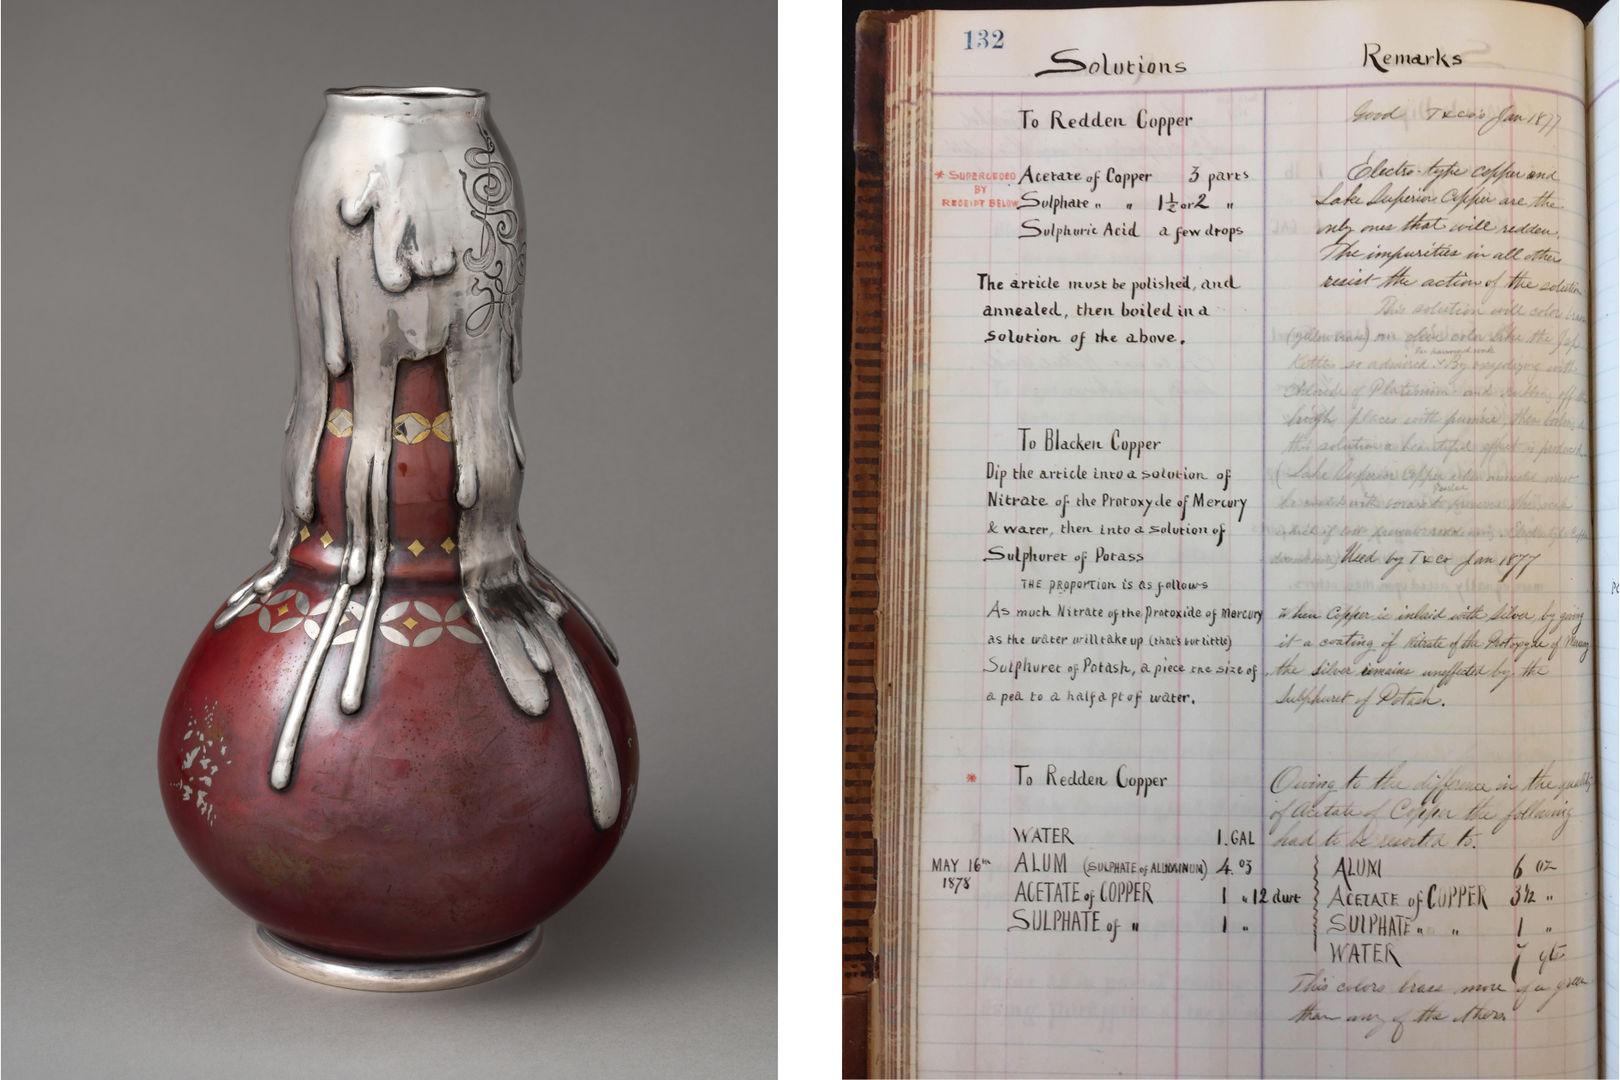 132
Solutions
Remarks
To Redden Copper
* SUPERCEDED
BY
RECEIPT BELOW
Acetate of Copper 3 parts
Sulphate " " 1½ or 2 "
Sulphuric Acid a few drops
The article must be polished, and
annealed, then boiled in a
solution of the above.
Good T&Co's Jan 1877
Electro-type copper and
Lake Superior Copper are the
only ones that will redden.
The impurities in all other
resist the action of the solution
This solution will color brass
(yellow brass) an olive color like the Jap
Kettles so admired. By employing with
Chloride of Platinum and rubbing off the
high places with pumice, then
this solution a beautiful effect is produced
(Lake Superior Copper when must
To Blacken Copper
Dip the article into a solution of
Nitrate of the Protoxyde of Mercury
& water, then into a solution of
Sulphuret of Potass
THE PROPORTION IS as follows
As much Nitrate of the Protoxide of Mercury
as the water will take up (that's but little)
Sulphuret of Potash, a piece the size of
a pea to a half a pt of water.
Used by T&Co Jan 1877
When Copper is inlaid with Silver, by giving
it a coating of Nitrate of the Protoxyde of Mercury
the silver remains uneffected by the
Sulphuret of Potash.
* To Redden Copper
WATER 1. GAL
MAY 16th
1878
ALUM (SULPHATE of ALUMINUM) 4. oz
ACETATE of COPPER 1 " 12 dwt
SULPHATE of " 1 "
Owing to the difference in the quality
of Acetate of Copper the following
had to be resorted to.
ALUM 6 oz
ACETATE of COPPER 3½ "
SULPHATE " " 1 "
WATER 7 qts
This colors brass more of a green
than any of the others.